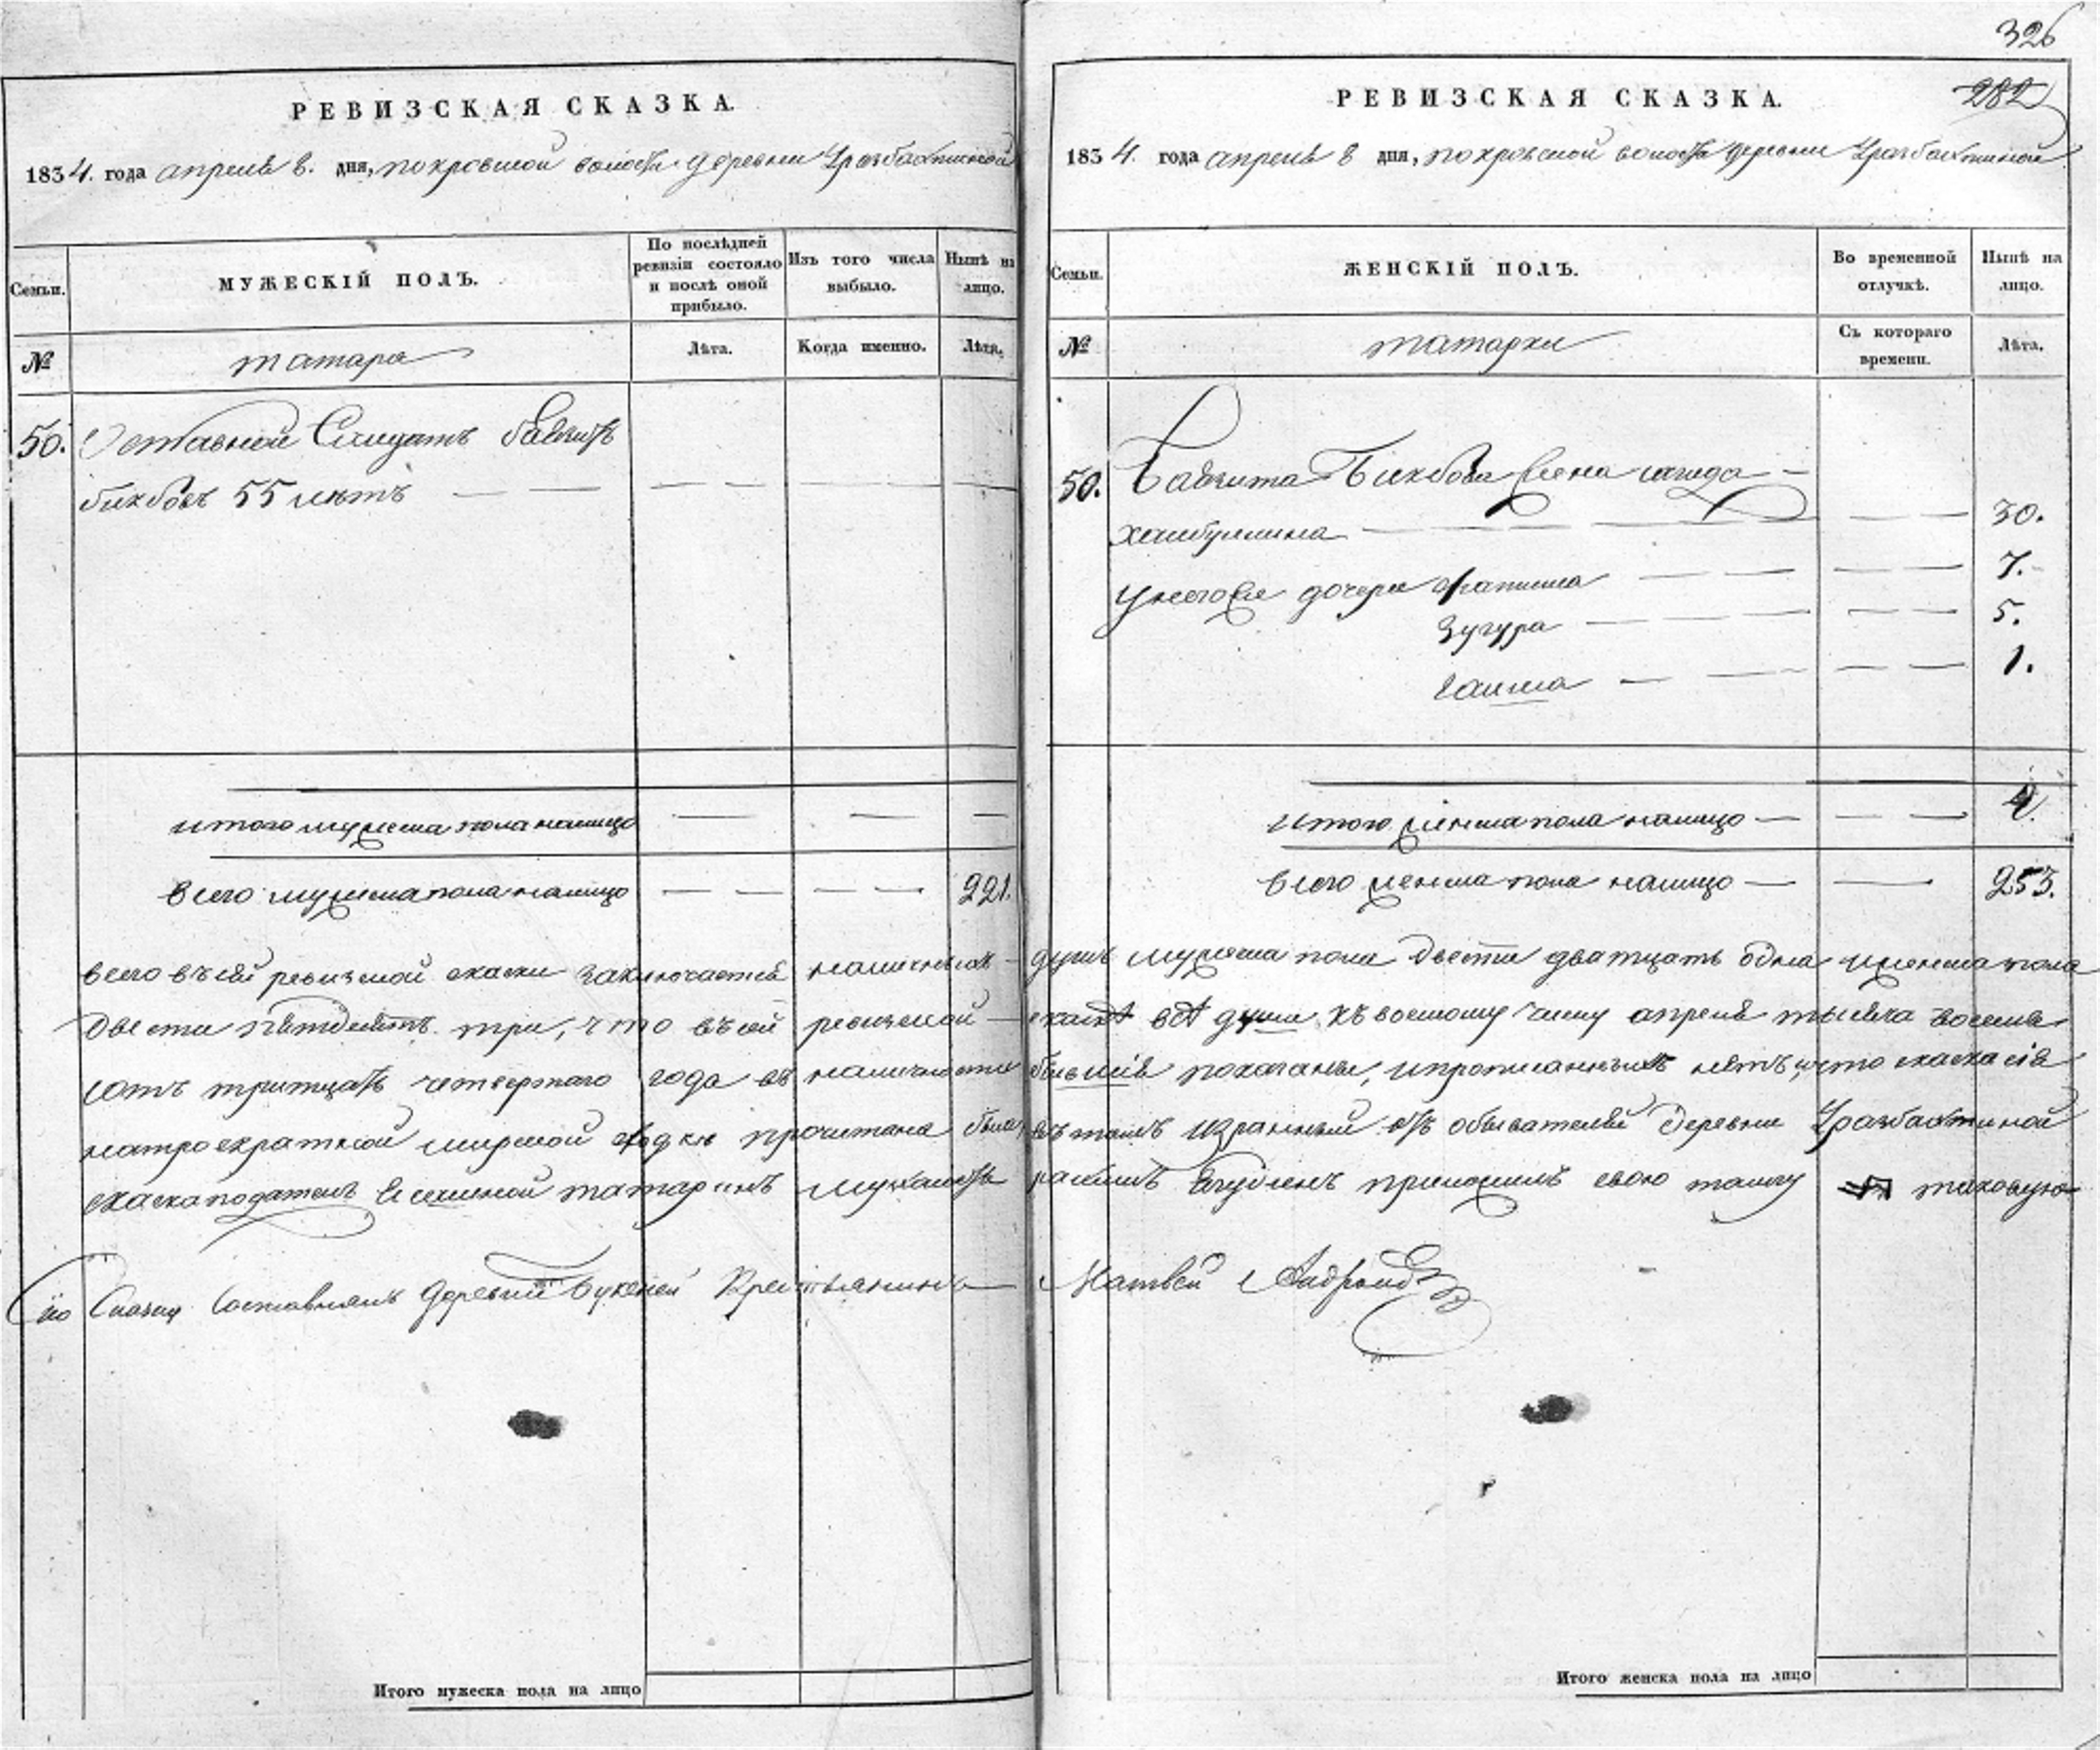 РЕВИЗСКАЯ СКАЗКА.
1834. года апреля 8. дня, покровской волости деревни Уразбахтиной
Семьи.
МУЖЕСКІЙ ПОЛЪ.
По послѣдней ревизіи состояло и послѣ оной прибыло.
Изъ того числа выбыло.
Нынѣ на лицо.
№
татара
Лѣта.
Когда именно.
Лѣта.
50. Отставной Солдатъ
бикбовъ 55 летъ
итого мужеска пола налицо
всего мужеска пола налицо 221.
326
282
РЕВИЗСКАЯ СКАЗКА.
1834. года апреля 8 дня, покровской волости деревни Уразбахтиной
Семьи.
ЖЕНСКІЙ ПОЛЪ.
Во временной отлучкѣ.
Нынѣ на лицо.
№
татарки
Съ котораго времени.
Лѣта.
50. Бикбова жена сагида
30.
унегоже дочери 7.
Зугура 5.
1.
итого женска пола налицо 4.
всего женска пола налицо 253.
всего въ сей ревизской скаски заключается наличныхъ душъ мужеска пола двести дватцать одна иженска пола
двести пятдесятъ три, что въ сей ревизской все души къ восмому числу апреля тысяча восемь
сотъ тритцать четвертаго года въ наличности бывшія показаны, ипрописанныхъ нетъ, что скаска сія
натроекратной мирской прочитана была, въ томъ избранный отъ обывателей деревни Уразбахтиной
скаскоподатель татаринъ приложилъ свою тамгу таковую
Сію Скаску Составлялъ деревни Крестьянинъ Матвей
Итого мужеска пола на лицо
Итого женска пола на лицо